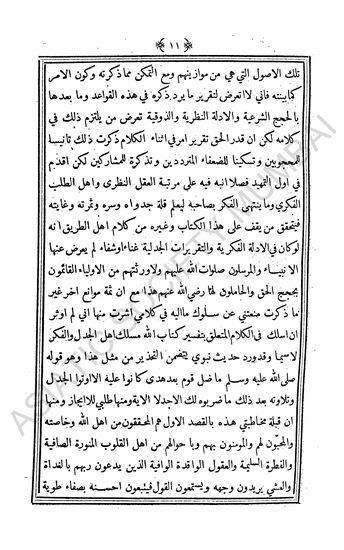 ﴿ ١١ ﴾
تلك الاصول التي هي من موازينهم ومع التمكن مما ذكرته وكون الامر
كما بينته فاني لا اتعرض لتقرير ما يرد ذكره في هذه القواعد وما بعدها
بالحجج الشرعية والادلة النظرية والذوقية تعرض من يلتزم ذلك في
كلامه لكن ان قدر الحق تقرير امر في اثناء الكلام ذكرت ذلك تأنيسا
للمحجوبين وتسكينا للضعفاء المترددين وتذكرة للمشاركين لكن اقدم
في اول التمهيد فصلا انبه فيه على مرتبة العقل النظرى واهل الطلب
الفكرى وما ينتهى الفكر بصاحبه ليعلم قلة جدواه وسره وثمرته وغايته
فيتحقق من يقف على هذا الكتاب وغيره من كلام اهل الطريق انه
لو كان في الادلة الفكرية والتقريرات الجدلية غناء او شفاء لم يعرض عنها
الانبياء والمرسلون صلوات الله عليهم ولا ورثتهم من الاولياء القائمون
بحجج الحق والحاملون لها رضي الله عنهم هذا مع ان ثمة موانع اخر غير
ما ذكرت منعتني عن سلوك ما اليه في كلامي اشرت منها اني لم اوثر
ان اسلك في الكلام المتعلق بتفسير كتاب الله مسلك اهل الجدل والفكر
لا سيما وقد ورد حديث نبوي يتضمن التحذير من مثل هذا وهو قوله
صلى الله عليه وسلم ما ضل قوم بعد هدى كانوا عليه الا اوتوا الجدل
وتلاوته بعد ذلك ما ضربوه لك الا جدلا الاية ومنها طلبي للايجاز ومنها
ان قبلة مخاطبتي هذه بالقصد الاول هم المحققون من اهل الله وخاصته
والمحبون لهم والمومنون بهم وباحوالهم من اهل القلوب المنورة الصافية
والفطرة السليمة والعقول الوافدة الوافية الذين يدعون ربهم بالغداة
والعشي يريدون وجهه ويستمعون القول فيتبعون احسنه بصفاء طوية
ASIATIC SOCIETY MUMBAI